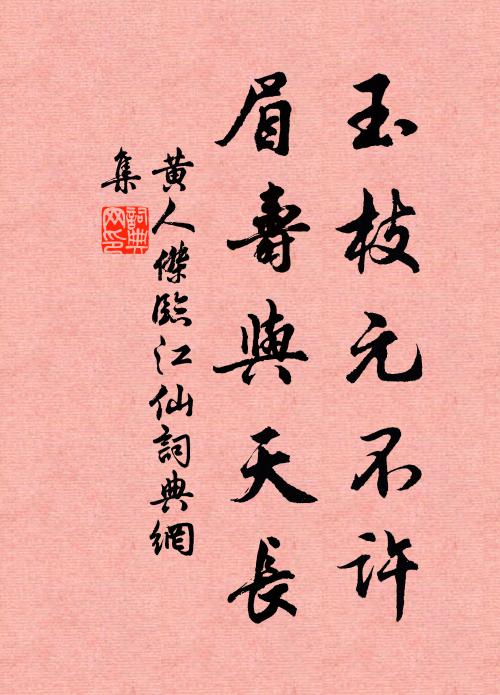 玉枝元不許
眉壽與天長
黄人傑臨江仙詞典網
集
詞典网印